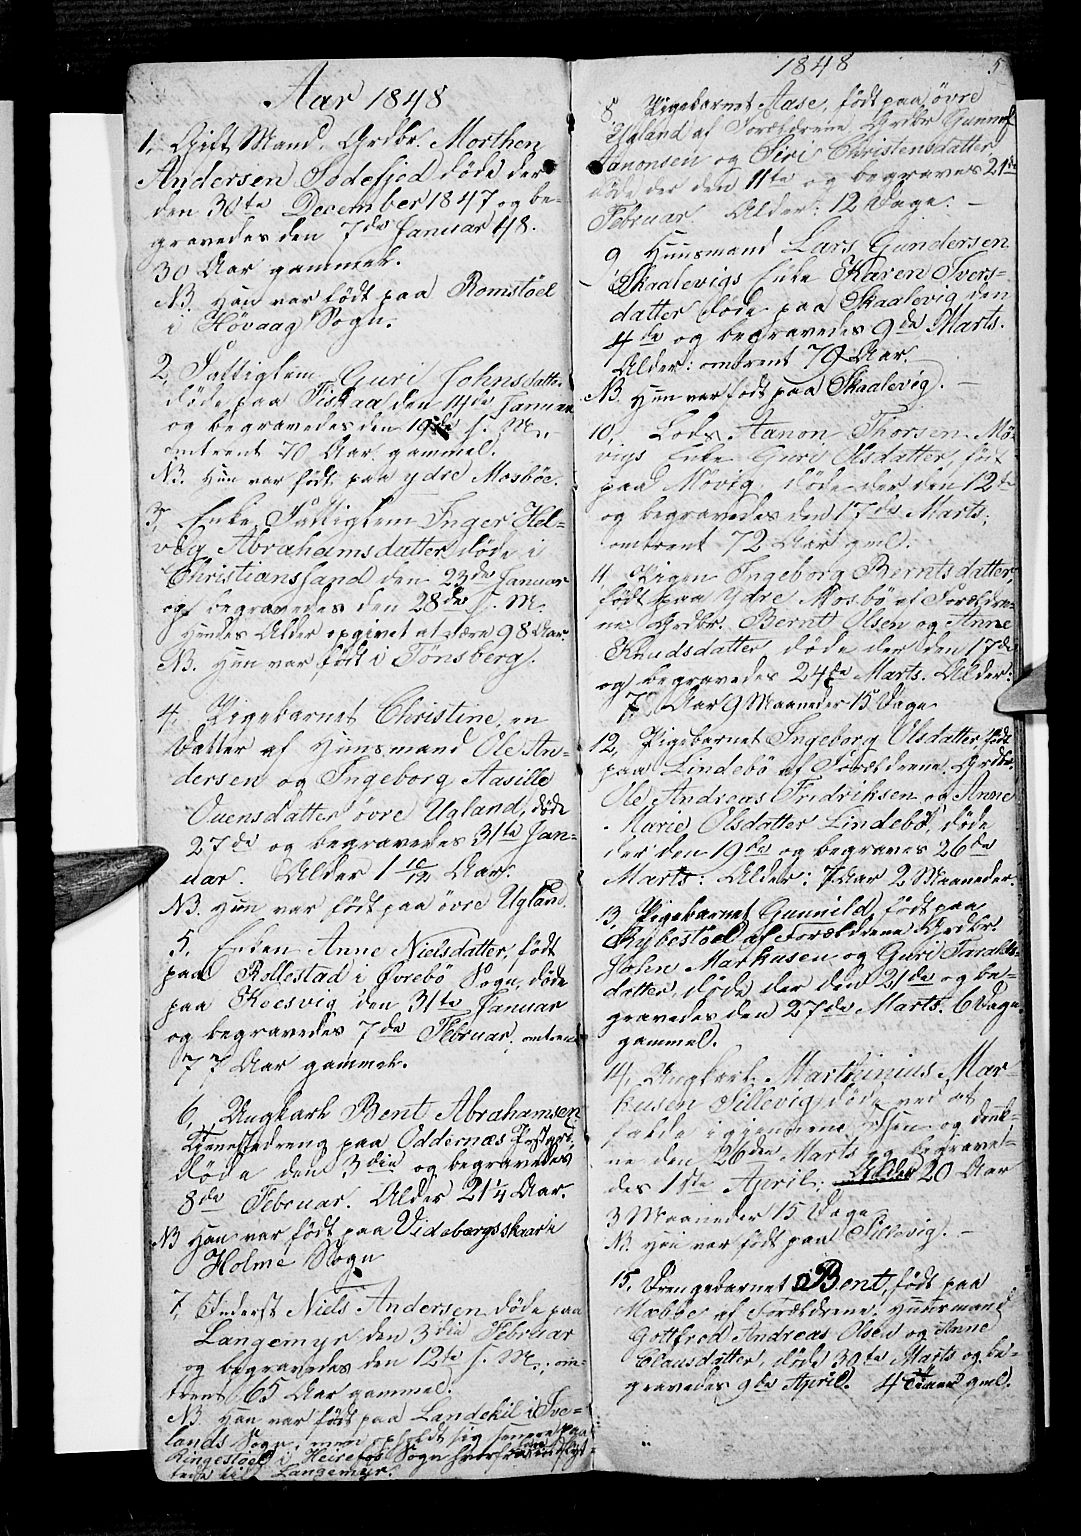 Aar 1848
1, Gift Mand, Grdbr. Morthen
Andersen Sodefjed døde der
den 30te December 1847 og be-
gravedes den 7de Januar 48.
30 Aar gammel.
NB. Han var født paa Romstøel
i Høvaag Sogn.
2, Fattiglem Guri Johnsdatter
døde paa Fiskaa den 14de Januar
og begravedes den 19de s. M.
omtrent 70 Aar gammel.
NB. Hun var født paa ydre Mosbøe.
3, Enke, Fattiglem Inger Hel-
vig Abrahamsdatter døde i
Christianssand den 23de Januar
og begravedes den 28de s. M.
Hendes Alder opgivet at være 98 Aar.
NB. Hun var født i Tønsberg.
4, Pigebarnet Christine, en
Datter af Huusmand Ole An-
dersen og Ingeborg Aasille
Ouensdatter øvre Ugland, døde
27de og begravedes 31te Jan-
uar. Alder 1 10/12 Aar.
NB. Hun var født paa øvre Ugland.
5, Enken Anne Nielsdatter, født
paa Rollestad i Øvrebø Sogn, døde
paa Roesvig den 31te Januar
og begravedes 7de Februar, omtrent
77 Aar gammel.
6, Ungkarl Bent Abrahamsen,
Tjenestedreng paa Oddernæs Præstgrd.
døde den 3die og begravedes
8de Februar. Alder 21¼ Aar.
NB Han var født paa Vidsbergsskaar i
Holme Sogn
7, Inderst Niels Andersen døde paa
Langemyr den 3die Februar
og begravedes den 12te s. M., om-
trent 65 Aar gammel.
NB. Han var født paa Landekil i Eve-
lands Sogn, men opholdt sig senere paa
Ringestøel i Heirefos Sogn hvorfra han indflyt-
tede til Langemyr.
1848 5
8, Pigebarnet Aase, født paa øvre
Ugland af Forældrene, Grdbr Gunnuf
Aanonsen og Siri Christensdatter
døde der den 11te og begraves 21de
Februar Alder: 12 Dage. —
9 Huusmand Lars Gundersen
Skaalevigs Enke Karen Ivers-
datter døde paa Skaalevig den
4de og begravedes 9de Marts.
Alder: omtrent 79 Aar.
NB. Hun var født paa Skaalevig. —
10, Lods Aanon Thorsen Mø-
vigs Enke Guri Olsdatter, født
paa Møvig, døde der den 12te
og begravedes den 17de Marts,
omtrent 72 Aar gml.
11 Pigen Ingeborg Berntsdatter,
født paa ydre Mosbø af Forældre-
ne Grdbr. Bernt Olsen og Anne
Knudsdatter, døde der den 17de
og begravedes 24de Marts. Alder:
7 Aar 9 Maaneder 15 Dage
12, Pigebarnet Ingeborg Olsdatter, født
paa Lindebø af Forældrene, Grdbr.
Ole Andreas Fridriksen og Anne
Marie Olsdatter Lindebø, døde
der den 19de og begraves 26de
Marts: Alder: 7 Aar 2 Maaneder.
13, Pigebarnet Gunnild, født paa
Rybestøel af Forældrene Grdbr.
John Markusen og Guri Taralds-
datter, døde der den 21de og be-
gravedes den 27de Marts. 6 Dage
gammel.
14, Ungkarl Marthinius Mar-
kusen Sillevig, døde ved at
falde igjennem Isen og druk-
ne den 26de Marts og begrave-
des 1ste April. Alder 20 Aar
3 Maaneder 15 Dage
NB. Han var født paa Sillevig. —
15. Drengebarnet Bent, født paa
Mosbøe af Forældrene, Huusmand
Gottfred Andreas Olsen og Anne
Clausdatter, døde 30te Marts og be-
gravedes 9de April. 4 Uger gml.